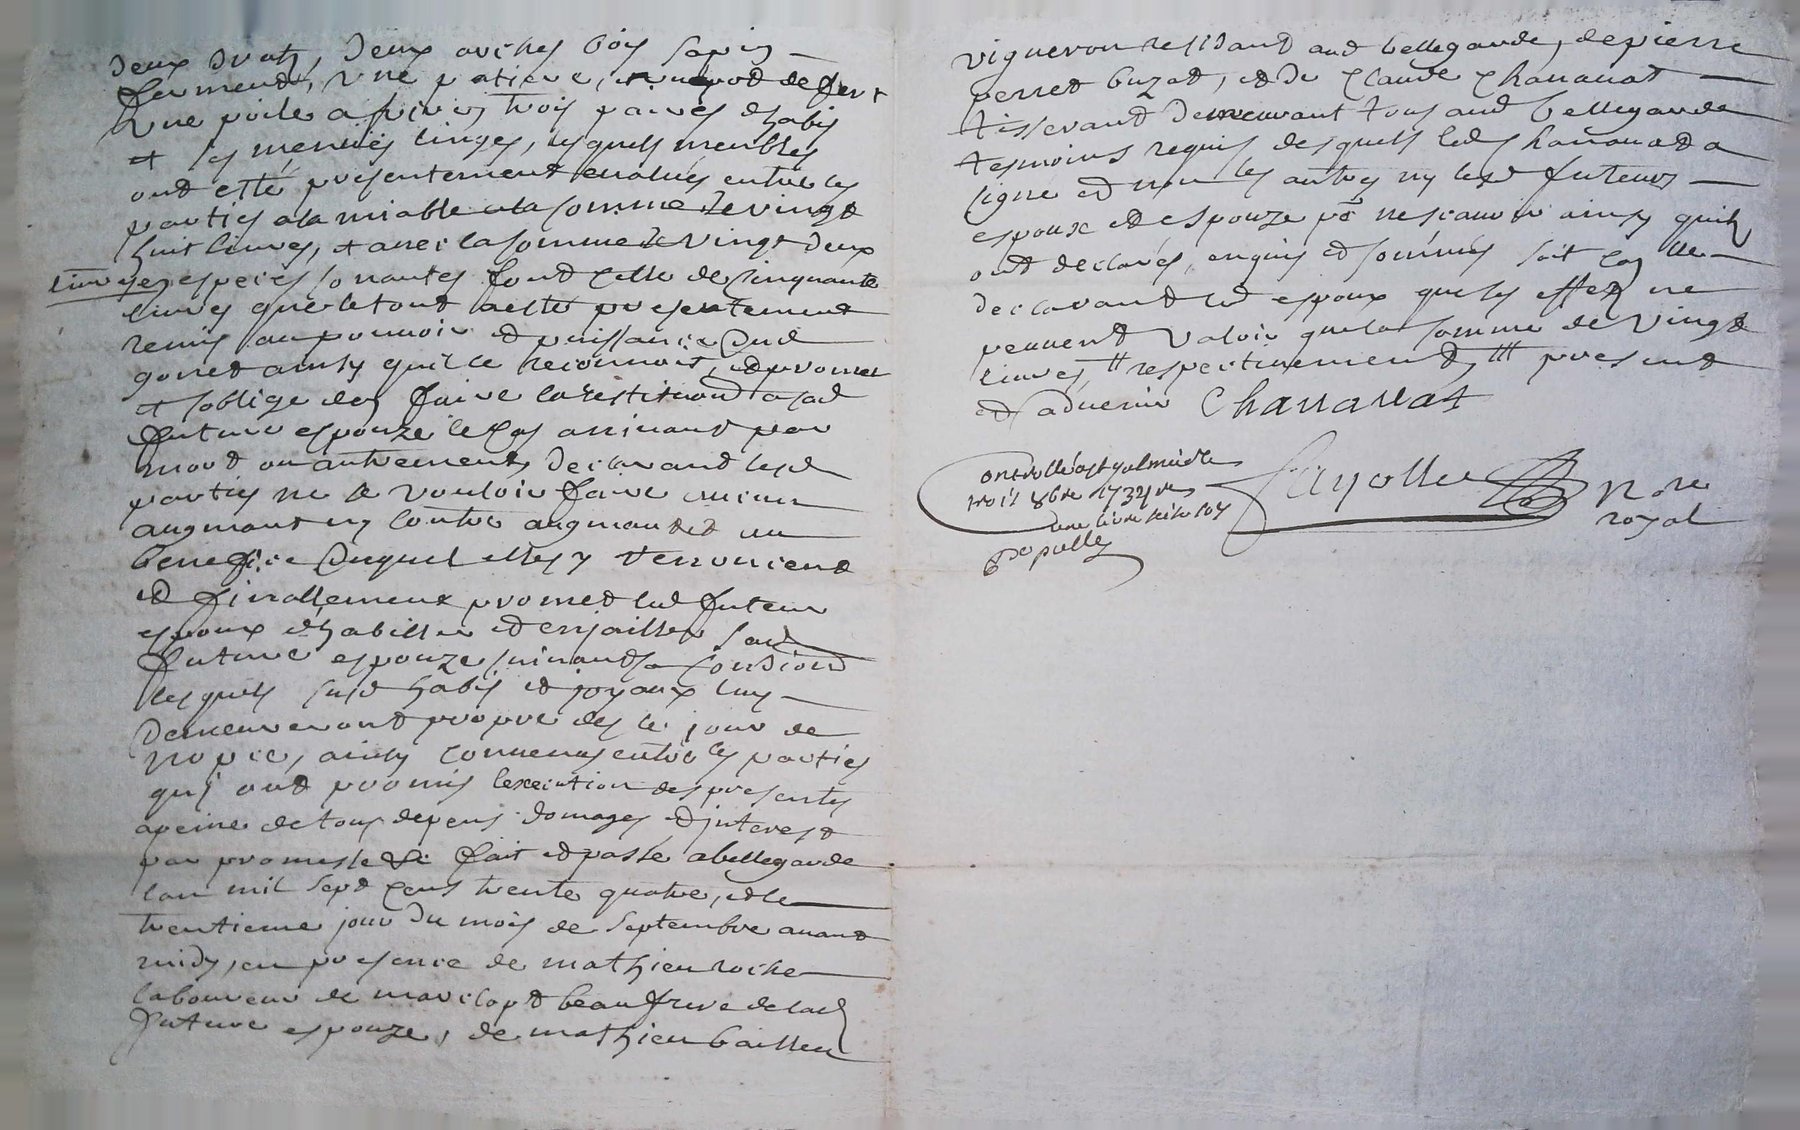 deux dratz, deux arches bois sapin
fermente, une patiere, un pod de fert
une poile a frire, trois paires d'habis
et ses menues linges, lesquels meubles
ont esté presentement evalués entre les
parties a la miable a la somme de vingt
huit livres, et avec la somme de vingt deux
livres en especes sonantes font celle de cinquante
livres que le tout a esté presentement
remis au pouvoir et puissance dud
gonet ainsy quil le reconnoit, et promet
et soblige den faire la restitution a sad
future espouze le cas arrivant par
mort ou autrement, declarand lesd
parties ne se vouloir faire aucun
augmant ny contre augmant et au
benefice duquel elles y renoncent
et finallement promet led futeur
espoux dhabiller et enjailler sad
future espouze suivant sa condiond
lesquels susd habis et joyaux luy
demeureront propre des le jour de
nopce, ainsy convenus entre les parties
qui ont promis lexecution des presentes
a peine de tous depens domages et jnterest
par promesse &c fait et passé a bellegarde
lan mil sept cens trente quatre, et le
trentieme jour du mois de septembre avant
midy, en presence de mathieu roche
laboureur de marclopt beaufrere de lad
future espouze, de mathieu bailleu
vigneron residant aud bellegarde, de pierre
perret buzat, et de claude chananat
tisserand demeurant tous aud bellegarde
tesmoins requis desquels led chananat a
signe et non les autres ny lesd futeurs
espoux et espouze pr ne scavoir ainsy quils
ont declarés, enquis et sommés soit con lle
declarant led espoux que ses effets ne
peuvent valoir que la somme de vingt
livres respectivement present
et advenir Chananat
Controllé a st galmier le
trois 8bre 1734 re
une livre seize sols
Fayolle Nore
royal